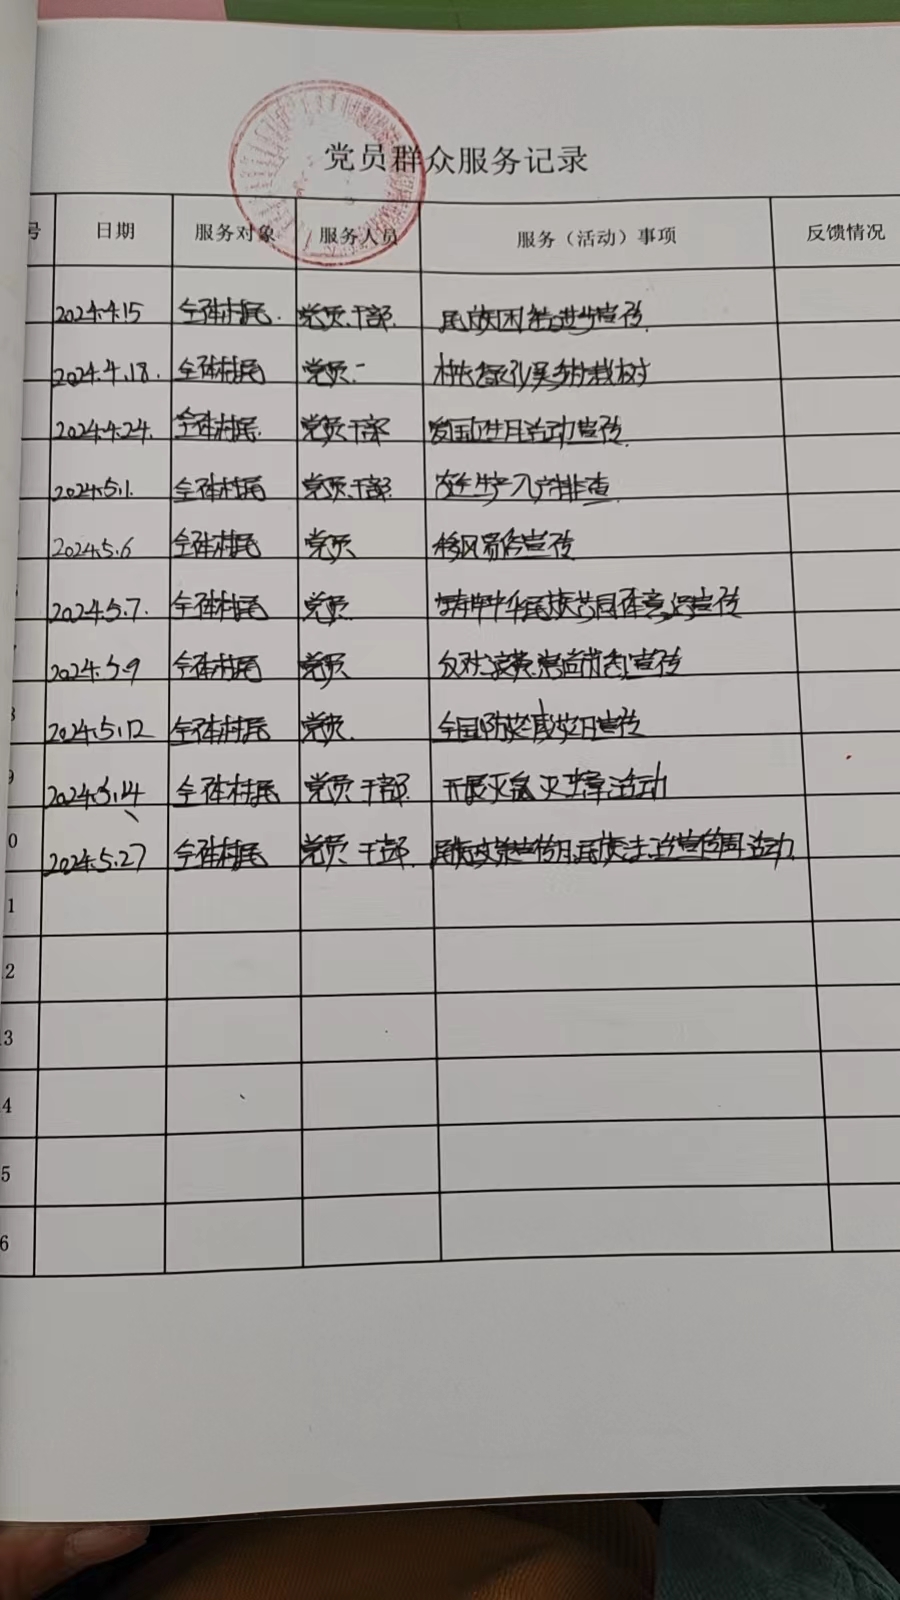 党员群众服务记录
号 日期 服务对象 服务人员 服务（活动）事项 反馈情况
2024.4.15 全体村民. 党员.干部. 民族团结进步宣传.
2024.4.18. 全体村民 党员. 栽树
2024.4.24. 全体村民. 党员干部 爱国卫生月活动宣传.
2024.5.1. 全体村民 党员.干部. 安全生产入户排查.
2024.5.6 全体村民 党员 移风易俗宣传
2024.5.7. 全体村民 党员. 铸牢中华民族共同体意识宣传
2024.5.9 全体村民 党员 反对浪费.宣传
8 2024.5.12 全体村民 党员. 全国防灾减灾日宣传
9 2024.5.14 全体村民 党员 干部. 开展灭鼠灭蟑活动
0 2024.5.27 全体村民 党员 干部. 民族政策宣传月.民族法治宣传周活动.
1
2
3
4
5
6